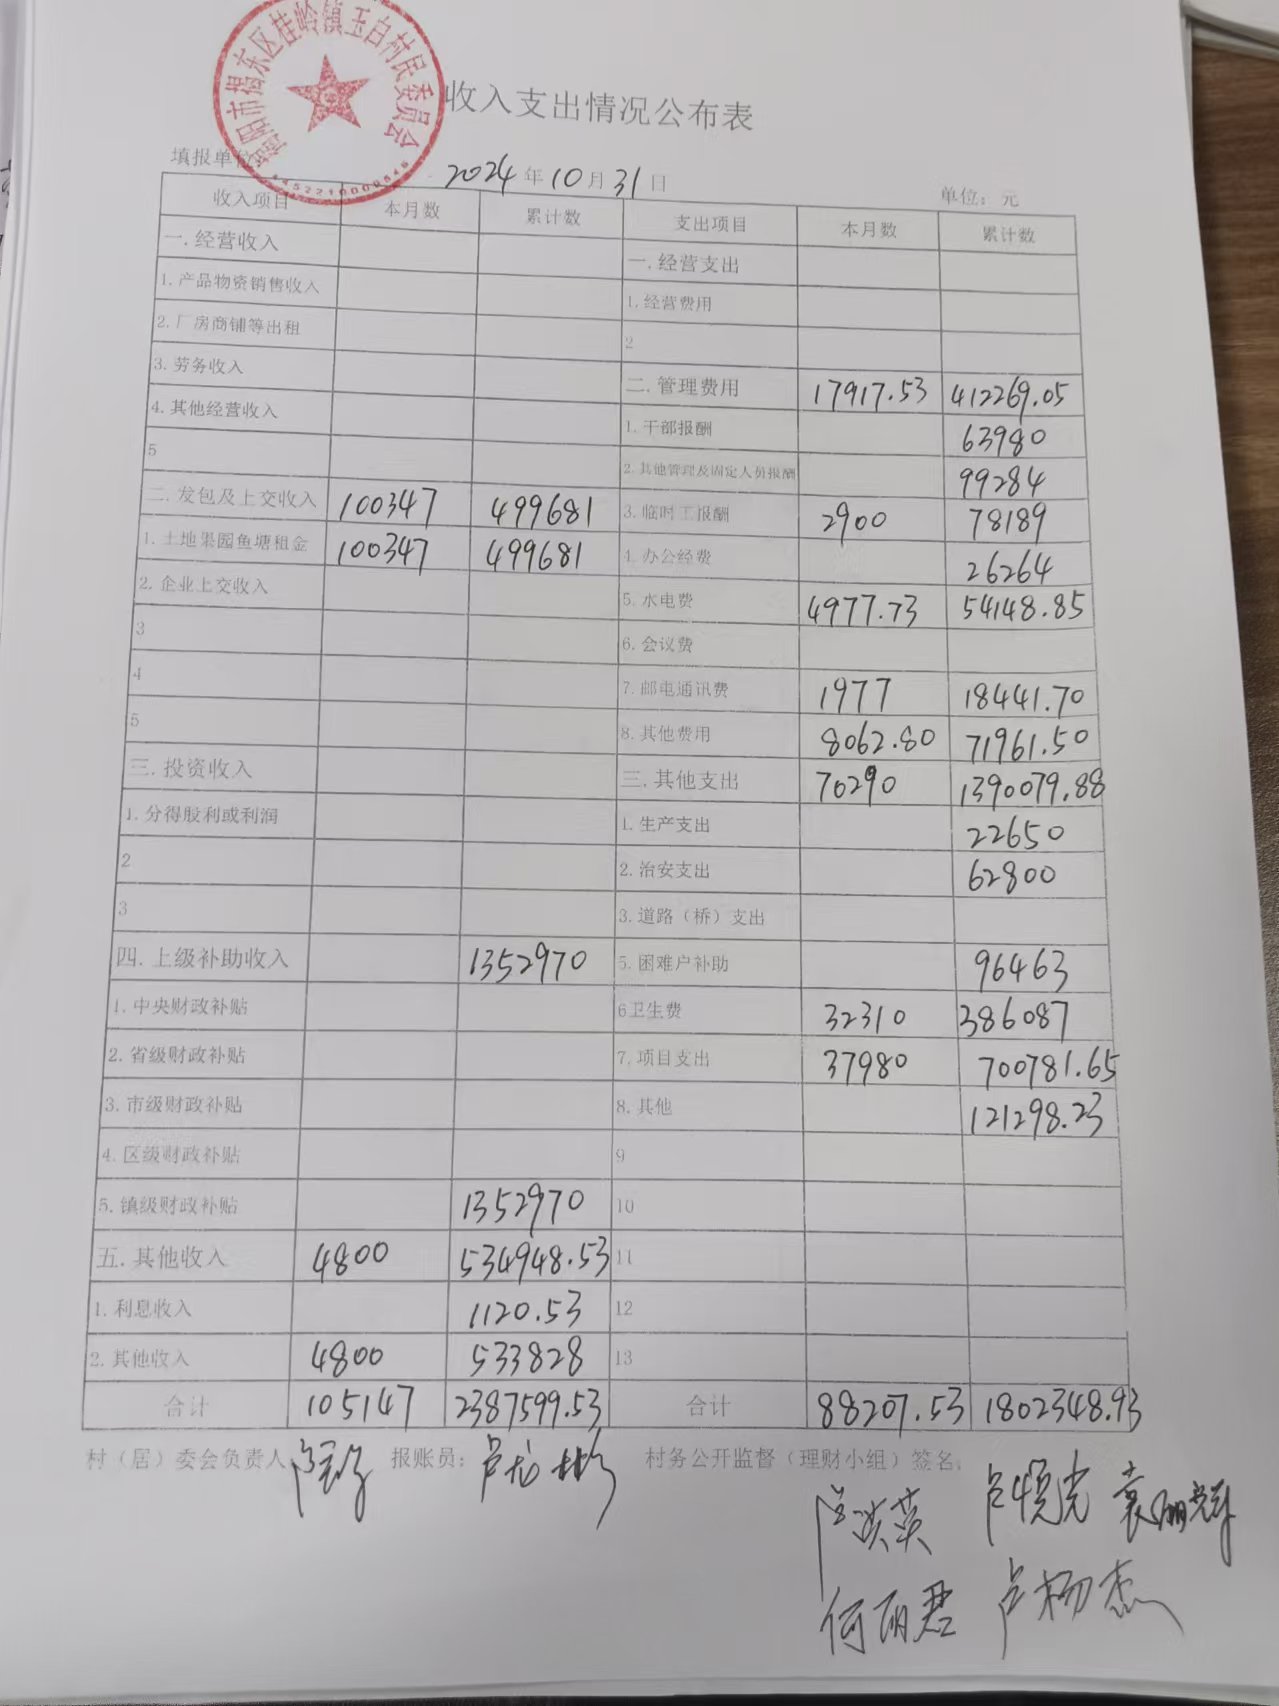 揭阳市揭东区桂岭镇玉白村民委员会
4452210000546
收入支出情况公布表
填报单位
2024年10月31日
单位：元
收入项目 本月数 累计数 支出项目 本月数 累计数
一.经营收入 一.经营支出
1.产品物资销售收入 1.经营费用
2.厂房商铺等出租 2
3.劳务收入 二.管理费用 17917.53 412269.05
4.其他经营收入 1.干部报酬 63980
5 2.其他管理及固定人员报酬 99284
二.发包及上交收入 100347 499681 3.临时工报酬 2900 78189
1.土地果园鱼塘租金 100347 499681 4.办公经费 26264
2.企业上交收入 5.水电费 4977.73 54148.85
3 6.会议费
4 7.邮电通讯费 1977 18441.70
5 8.其他费用 8062.80 71961.50
三.投资收入 三.其他支出 70290 1390079.88
1.分得股利或利润 1.生产支出 22650
2 2.治安支出 62800
3 3.道路（桥）支出
四.上级补助收入 1352970 5.困难户补助 96463
1.中央财政补贴 6卫生费 32310 386087
2.省级财政补贴 7.项目支出 37980 700781.65
3.市级财政补贴 8.其他 121298.23
4.区级财政补贴 9
5.镇级财政补贴 1352970 10
五.其他收入 4800 534948.53 11
1.利息收入 1120.53 12
2.其他收入 4800 533828 13
合计 105147 2387599.53 合计 88207.53 1802348.93
村（居）委会负责人 报账员： 村务公开监督（理财小组）签名：
卢洪英
何丽君 卢杨杰